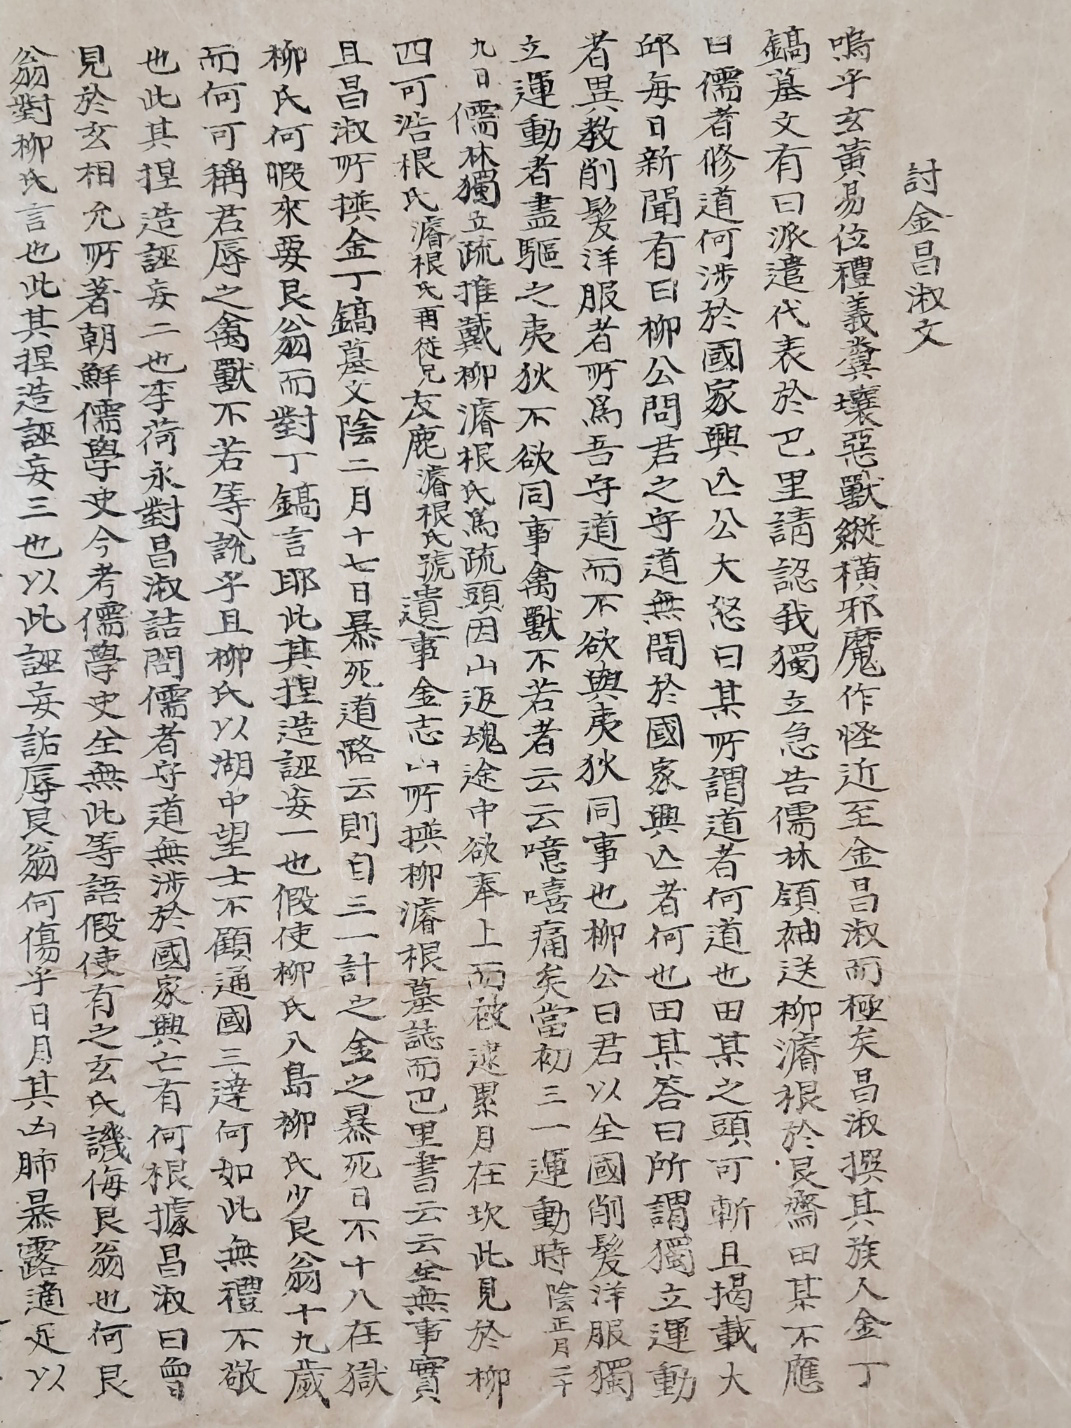 討金昌淑文
嗚乎玄黃易位禮義糞壤惡獸縱橫邪魔作怪近至金昌淑而極矣昌淑撰其族人金丁
鎬墓文有曰派遣代表於巴里請認我獨立急告儒林領袖送柳濬根於艮齋田某不應
曰儒者修道何涉於國家興亾公大怒曰某所謂道者何道也田某之頭可斬且揭載大
邱每日新聞有曰柳公問君之守道無間於國家興亾者何也田某答曰所謂獨立運動
者異教削髮洋服者所爲吾守道而不欲與夷狄同事也柳公曰君以全國削髮洋服獨
立運動者盡驅之夷狄不欲同事禽獸不若者云云噫嘻痛矣當初三一運動時陰正月二十
九日儒林獨立疏推戴柳濬根氏爲疏頭因山返魂途中欲奉上而被逮累月在坎此見於柳
四可浩根氏濬根氏再從兄友鹿濬根氏號遺事金志山所撰柳濬根墓誌而巴里書云云全無事實
且昌淑所撰金丁鎬墓文陰二月十七日暴死道路云則自三一計之金之暴死日不十八在獄
柳氏何暇來要艮翁而對丁鎬言耶此其捏造誣妄一也假使柳氏入島柳氏少艮翁十九歲
而何可稱君辱之禽獸不若等說乎且柳氏以湖中望士不顧通國三達何如此無禮不敬
也此其捏造誣妄二也李荷永對昌淑詰問儒者守道無涉於國家興亡有何根據昌淑曰曾
見於玄相允所著朝鮮儒學史今考儒學史全無此等語假使有之玄氏譏侮艮翁也何艮
翁對柳氏言也此其捏造誣妄三也以此誣妄詬辱艮翁何傷乎日月其凶肺暴露適足以